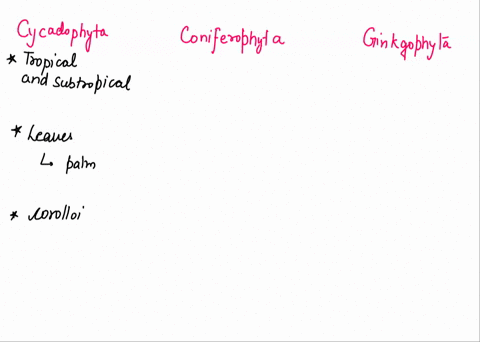 Cycadophyta Coniferophyta Ginkgophyta
* Tropical
and subtropical
* Leaves
↳ palm
* Corolloi